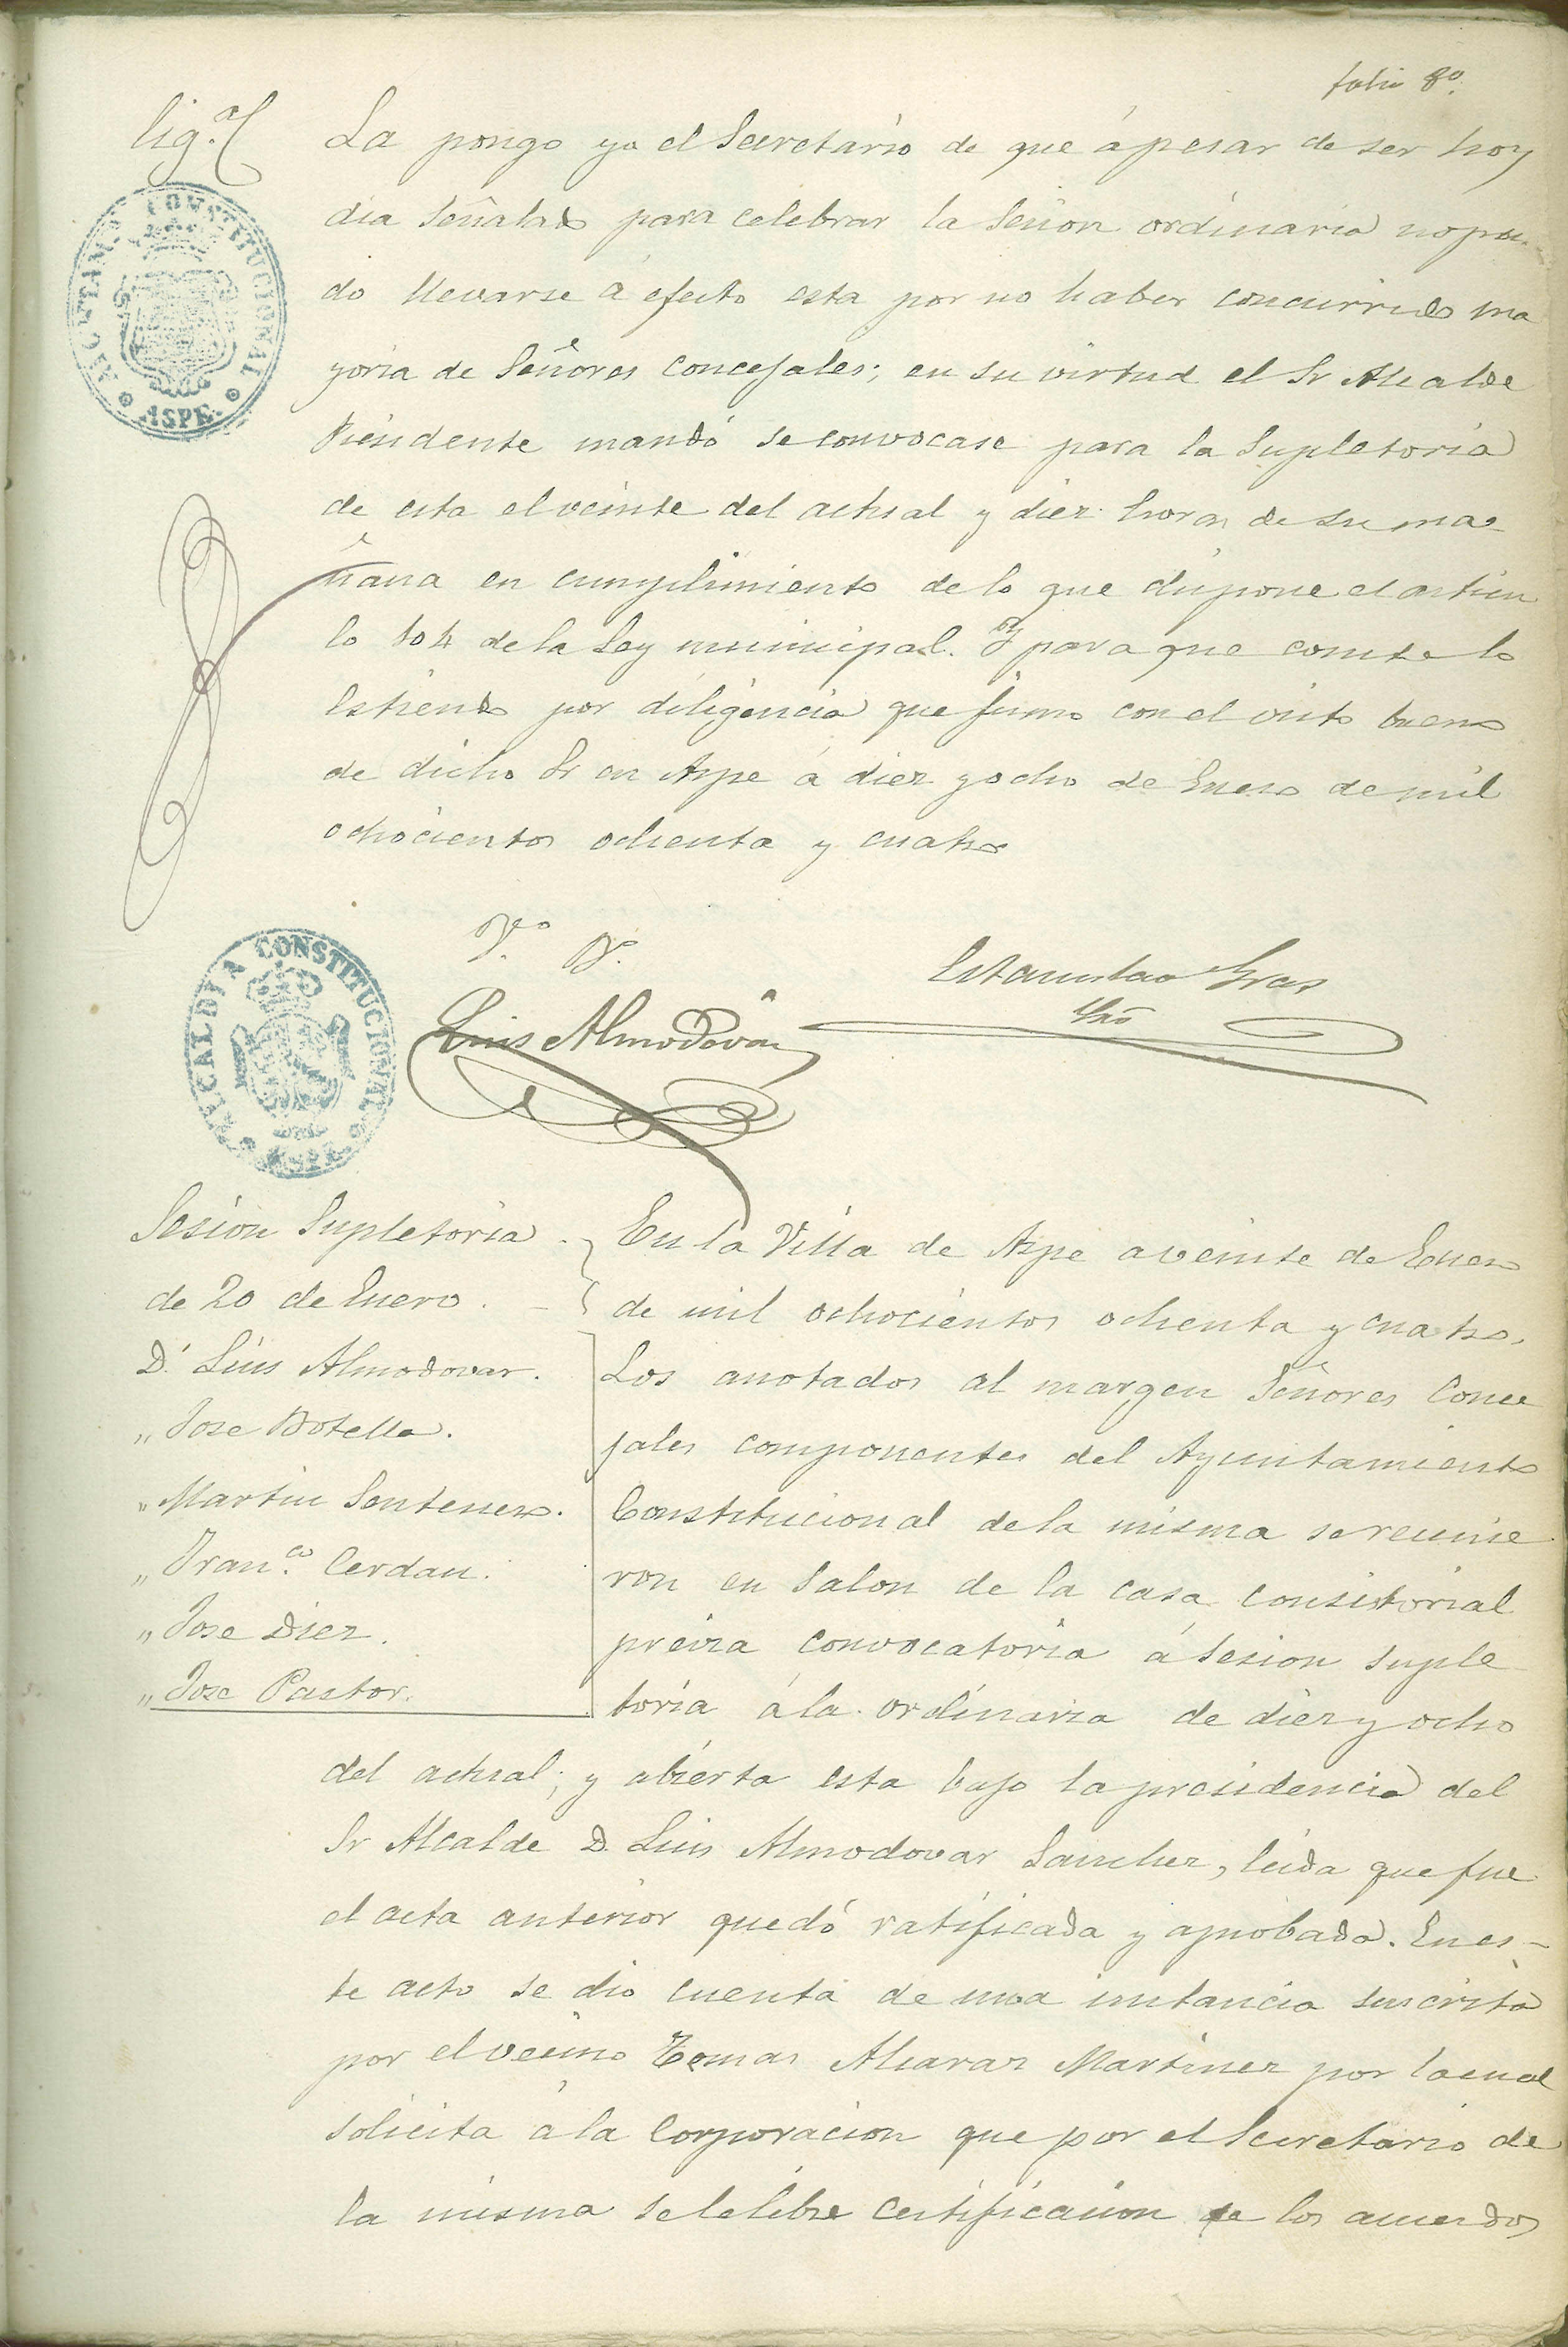 folio 8º.
Dig.ª
La pongo yo el Secretario de que á pesar de ser hoy
dia señalado para celebrar la sesion ordinaria no pu-
do llevarse á efecto esta por no haber concurrido ma
yoria de Señores Concejales; en su virtud el Sr Alcalde
Presidente mandó se convocase para la Supletoria
de esta el veinte del actual y diez horas de su ma-
ñana en cumplimiento de lo que dispone el articu
lo 104 de la Ley municipal. Y para que conste lo
estiendo por diligencia que firmo con el visto bueno
de dicho Sr en Aspe á diez y ocho de Enero de mil
ochocientos ochenta y cuatro
ALCALDIA CONSTITUCIONAL
ASPE
V.º B.º
Luis Almodovar
Estanislao Gras
Srio
ALCALDIA CONSTITUCIONAL
ASPE
Sesion Supletoria
de 20 de Enero.
D. Luis Almodovar.
„ Jose Botella.
„ Martin Sentenero.
„ Fran.co Cerdan.
„ Jose Diez.
„ Jose Pastor.
En la Villa de Aspe a veinte de Enero
de mil ochocientos ochenta y cuatro.
Los anotados al margen Señores Conce
jales componentes del Ayuntamiento
Constitucional de la misma se reunie
ron en salon de la casa consistorial
previa convocatoria á sesion suple
toria á la ordinaria de diez y ocho
del actual; y abierta esta bajo la presidencia del
Sr Alcalde D. Luis Almodovar Sanchez, leida que fue
el acta anterior quedó ratificada y aprobada. En es-
te acto se dio cuenta de una instancia suscrita
por el vecino Tomas Alcaraz Martinez por la cual
solicita á la Corporacion que por el Secretario de
la misma se le libre certificacion de los acuerdos